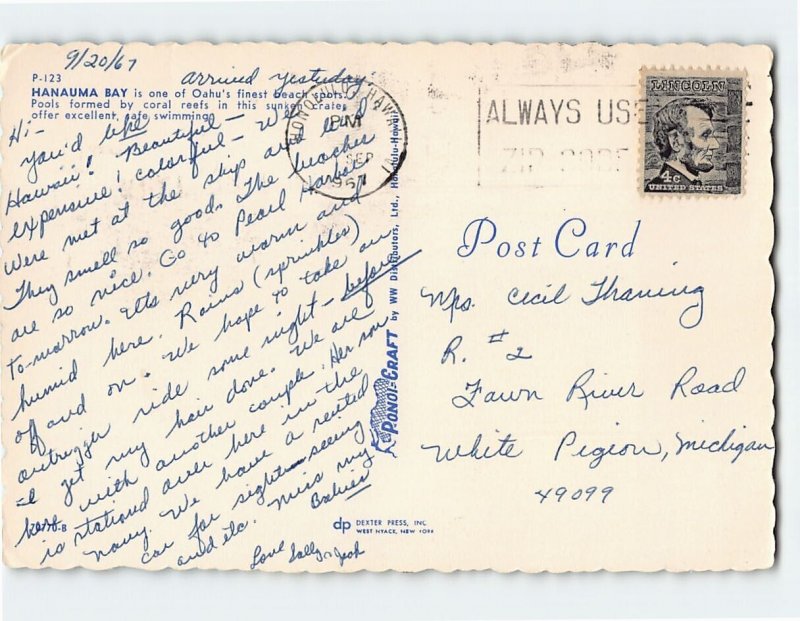 9/20/67
arrived yesterday.
P-123
HANAUMA BAY is one of Oahu's finest beach spots.
Pools formed by coral reefs in this sunken crater
offer excellent, safe swimming.
Hi-
You'd like
Hawaii! Beautiful -
expensive! colorful - We
were met at the ship and leied
They smell so good. The beaches
are so nice. Go to Pearl Harbor
to-morrow. Its very warm and
humid here. Rains (sprinkles)
off and on. We hope to take an
outrigger ride some night - before
I get my hair done. We are
here with another couple. Her son
is stationed over here in the
navy. We have a rented
car for sight seeing
and etc. Miss my
Babies
Love Sally &
B
by WW Distributors, Ltd., Honolulu-Hawaii
PONOI-CRAFT
dp DEXTER PRESS, INC
WEST NYACK, NEW YORK
HONOLULU, HAWAII
PM
SEP
1967
ALWAYS USE
ZIP CODE
LINCOLN
4c
UNITED STATES
Post Card
Mrs. Cecil Thaning
R. #2
Fawn River Road
White Pigeon, Michigan
49099